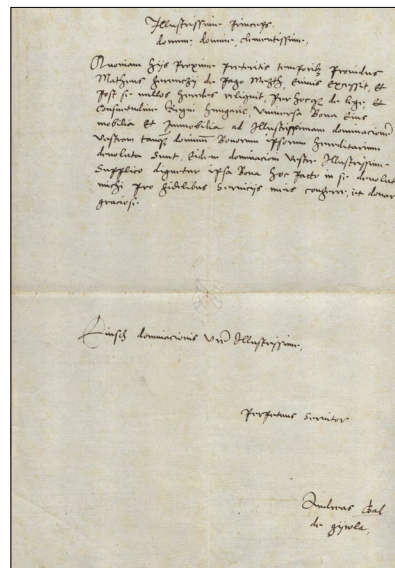 Illustrissime Princeps
domine, domine, clementissime,
Quoniam hijs Proxime preteritis temporibus Providus
Matheus de Pago Mezth, Evivis excessit, et
Post se nullos heredes reliquit, Per hocque de lege, et
Consuetudine Regni Hungarie, Universa Bona Eius
mobilia et Immobilia ad Illustrissimam dominacionem
vestram tanquam dominum Bonorum ipsorum hereditarium
devoluta sunt, Eidem dominacioni vestre Illustrissime
Supplico dignetur ipsa Bona hoc Pacto in se devoluta
michi Pro fidelibus Servicijs meis conferre, et donare
graciose.
Eiusdem dominacionis Vre Illustrissime,
Perpetuus Servitor
Andreas
de gywla